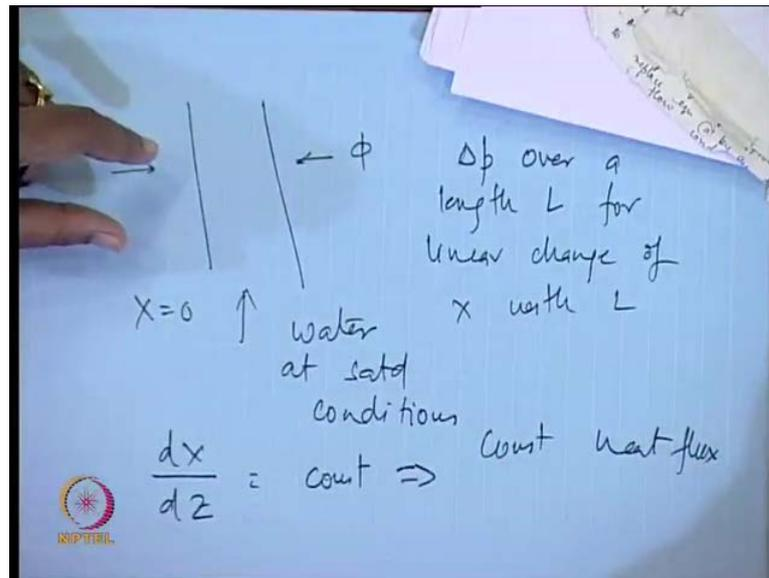 ← ϕ
Δp over a
length L for
linear change of
x with L
x=0 ↑ water
at satd
conditions
dx/dz = const ⇒ const heat flux
replace
flow
NPTEL